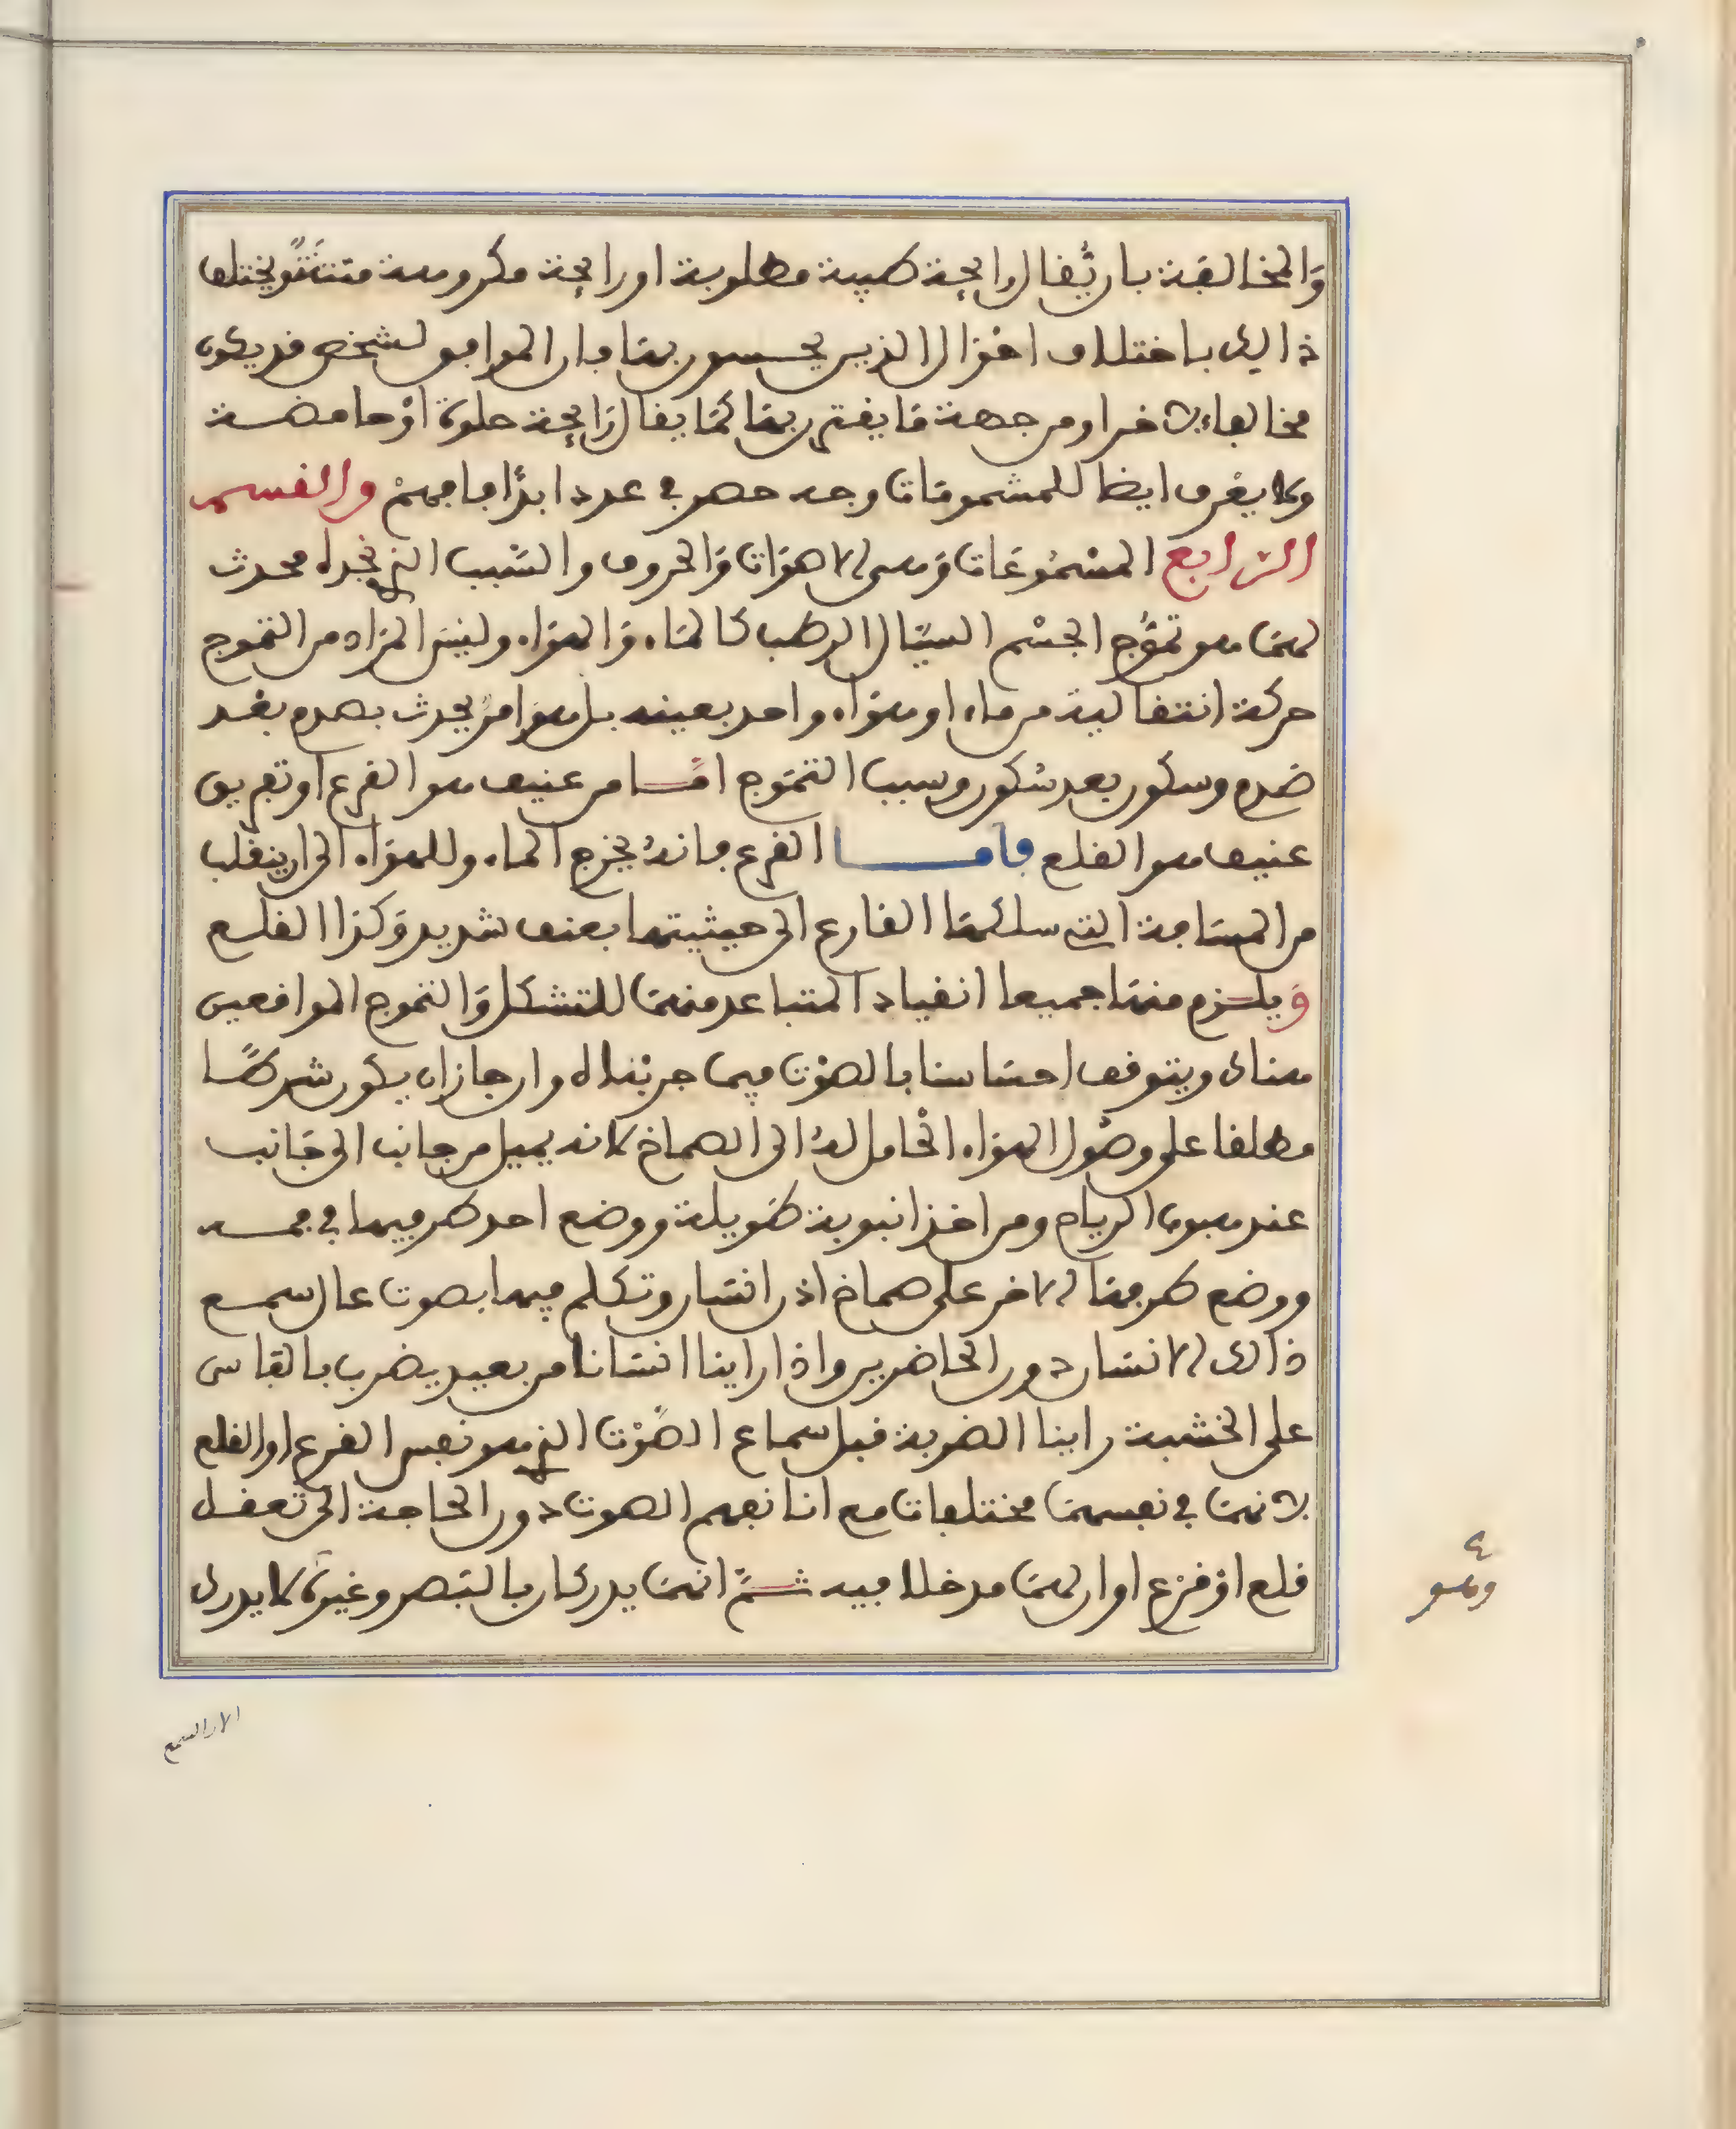 والمخالفة بان يقال رايحة طيبة مطلوبة او رايحة مكروهة منتنة ويختلف
ذالك باختلاف احوال الذين يحسون بها فان الموافق لشخص قد يكون
مخالفا ءلاخر او من جهة ما يقترن بها كما يقال رايحة حلوة او حامضة
ولا يعرف ايضا للمشمومات وجه حصر في عدد ابدا فافهم والقسم
الرابع المسموعات وهي الاصوات والحروف والسبب القريب محدث
لهما هو تموج الجسم السيال الرطب كالماء والهواء وليس المراد من التموج
حركة انتقالية من ماء او هواء واحد بعينه بل هو امر يحدث بصدم بعد
صدم وسكون بعد سكون وسبب التموج امساس عنيف هو القرع او تفريق
عنيف هو القلع فاما القرع فانه يخرج الماء وللهواء الى ان ينقلب
من المسافة التي سلكها القارع الى حيثيتها بعنف شديد وكذا القلع
ويلزم منهما جميعا انقياد المتباعد منهما للتشكل والتموج الموافعين
هناك ويتوقف احساسنا بالصوت فيما جربناه وان جاز ان يكون شرطا
مطلقا على وصول الهواء الحامل له الى الصماخ لانه يميل من جانب الى جانب
عند هبوب الرياح ومن اخذ انبوبة طويلة ووضع احد طرفيها في فمه
ووضع طرفها الاخر على صماخ اذن انسان وتكلم فيها بصوت عال سمع
ذالك الانسان دون الحاضرين واذا راينا انسانا من بعيد يضرب بالفاس
على الخشبة راينا الضربة قبل سماع الصوت الذي هو نفس القرع او القلع
لانهما في نفسهما مختلفان مع انا نفهم الصوت دون الحاجة الى تعقل
قلع او قرع او ان لهما مدخلا فيه ثم انهما يدركان بالبصر وغيره لا يدرك
وهو
الا بالسمع